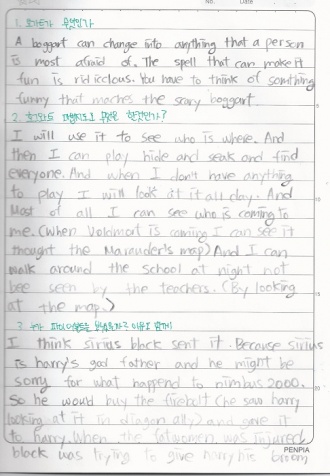 No. Date
1. 보가트가 무엇인가
A boggart can change into anything that a person
is most afraid of. The spell that can make it
fun is ridicclous. You have to think of somthing
funny that maches the scary boggart.
2.
I will use it to see who is where. And
then I can play hide and seak and find
everyone. And when I don't have anything
to play I will look at it all day. And
Most of all I can see who is coming to
me. (When Voldmort is coming I can see it
thought the Marauder's map) And I can
walk around the school at night not
bee seen by the teachers. (By looking
at the map.)
3.
I think sirius black sent it. Because sirius
is harry's god father and he might be
sorry for what happend to nimbus 2000.
So he would buy the firebolt (he saw harry
looking at it in diagon ally) and gave it
to harry. When the was injured
black was trying to give harry his broom
PENPIA